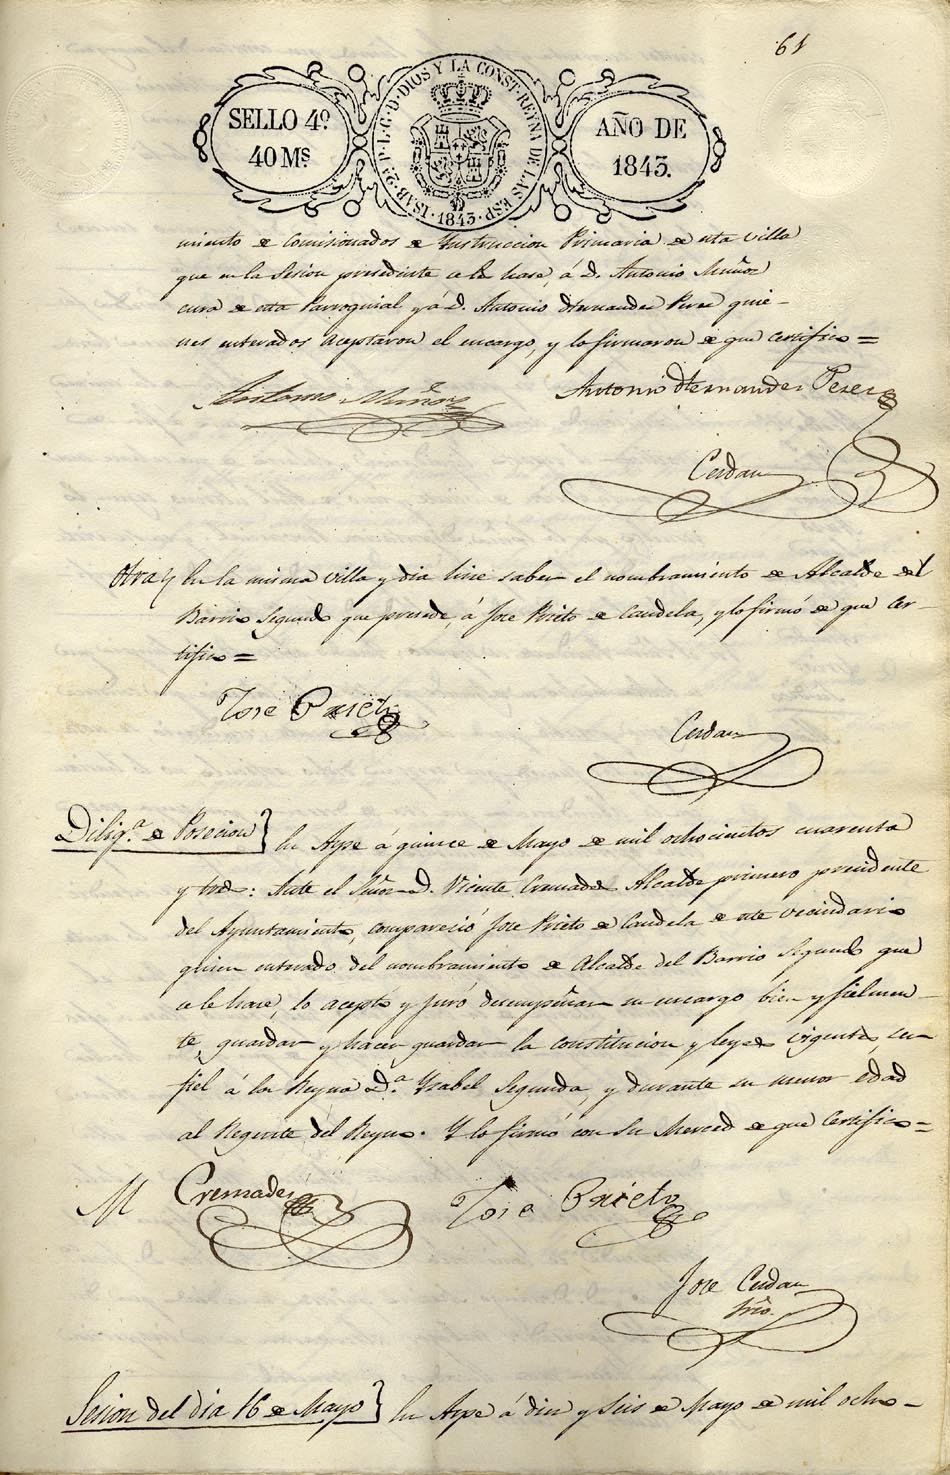 61
SELLO 4º
40 Ms
ISAB. 2ª P. L. G. D. DIOS Y LA CONST. REYNA DE LAS ESP.
1843
AÑO DE
1843.
miento de comisionados de Ynstruccion Primaria de esta villa
que en la Sesion presediente se les hase, á D. Antonio Muñoz
cura de esta Parroquial y á D. Antonio Hernandez Perez quie-
nes enterados aceptaron el encargo, y lo firmaron de que certifico =
Antonio Muñoz
Antonio Hernandez Perez
Cerdan
Otra} En la misma villa y dia hise saber el nombramiento de Alcalde del
Barrio Segundo que presede, á Jose Prieto de Candela, y lo firmó de que cer-
tifico =
Jose Prieto
Cerdan
Diligª de Posecion} En Aspe á quince de Mayo de mil ochocientos cuarenta
y tres: Ante el Señor D. Vicente Cremades Alcalde primero presidente
del Ayuntamiento, comparesió Jose Prieto de Candela de este vecindario
quien enterado del nombramiento de Alcalde del Barrio Segundo que
se le hase, lo aceptó y juró desempeñar su encargo bien y fielmen-
te, guardar y hacer guardar la constitucion y leyes vigentes, ser
fiel á la Reyna Dª. Ysabel Segunda, y durante su menor edad
al Regente del Reyno. Y lo firmó con Su Merced de que Certifico =
M Cremades
Jose Prieto
Jose Cerdan
Srio.
Sesion del dia 16 de Mayo} En Aspe á diez y seis de Mayo de mil ocho-